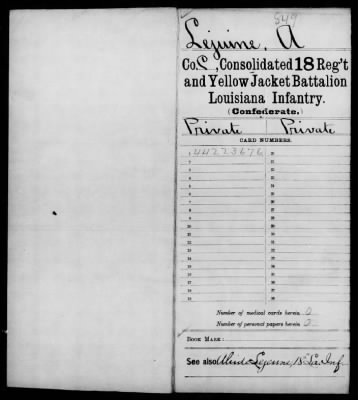 549
Lejuine, A
Co. C, Consolidated 18 Reg't
and Yellow Jacket Battalion
Louisiana Infantry.
(Confederate.)
Private Private
CARD NUMBERS.
1 44223676 20
2 21
3 22
4 23
5 24
6 25
7 26
8 27
9 28
10 29
11 30
12 31
13 32
14 33
15 34
16 35
17 36
18 37
19 38
Number of medical cards herein 0
Number of personal papers herein 0
BOOK MARK:
See also Lejeune, La. Inf.